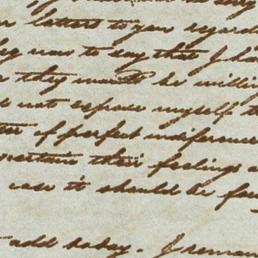 letters to you regard
beg now to say that I ha
they would be willi
not expose myself t
of perfect indifference
ascertain their feelings a
case it should be fa
add today. I remain